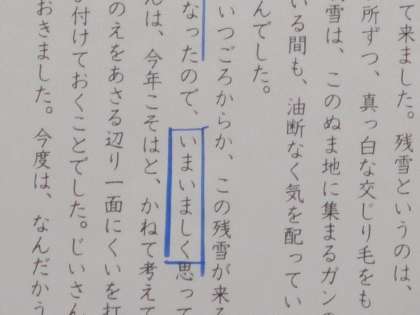 て来ました。残雪というのは、
所ずつ、真っ白な交じり毛をも
雪は、このぬま地に集まるガンの
いる間も、油断なく気を配ってい
んでした。
いつごろからか、この残雪が来る
なったので、いまいましく思って
んは、今年こそはと、かねて考えて
のえをあさる辺り一面にくいを打
付けておくことでした。じいさん
おきました。今度は、なんだかう